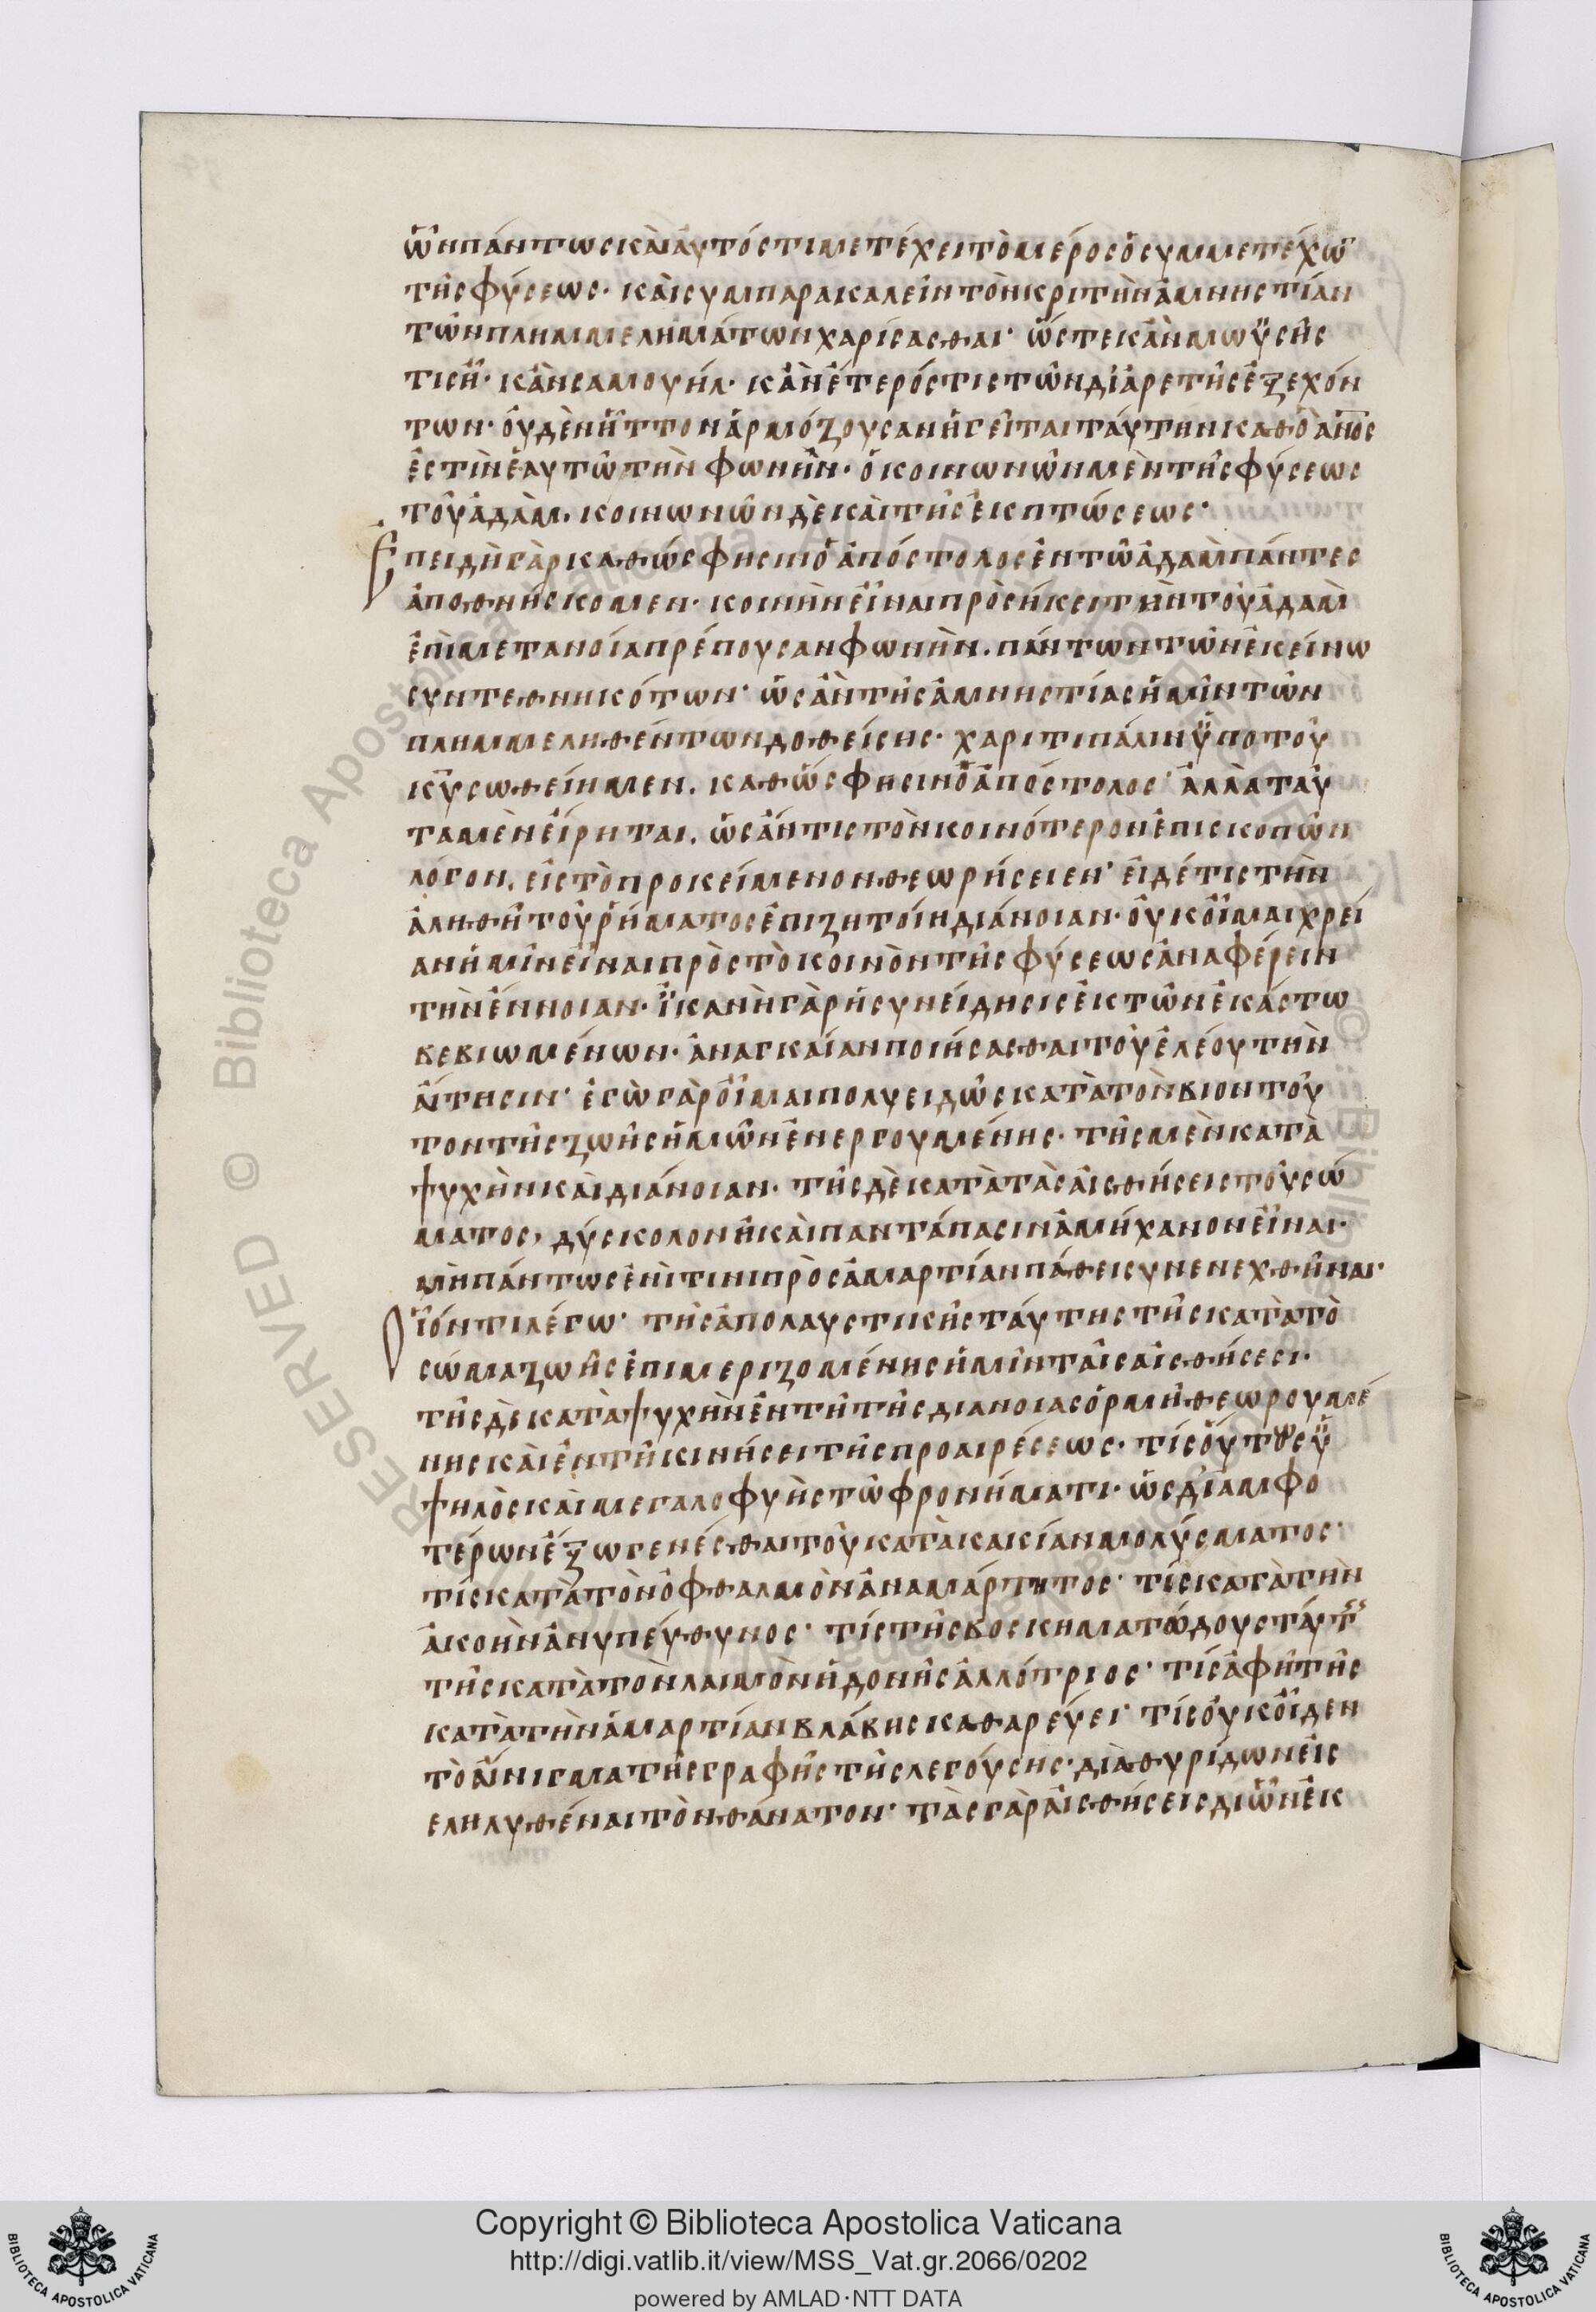 ὧν πάντως καὶ αὐτός τι μετέχει τὸ μέρος ὁ συμμετέχω
τῆς φύσεως· καὶ συμπαρακαλεῖν τὸν κριτὴν ἀμνηστίαν
τῶν πλημμελημάτων χαρίσασθαι· ὥστε κἂν μωϋσῆς
τις ἦ· κἂν σαμουήλ· κἂν ἕτερός τις τῶν δι ἀρετῆς ἐξεχόν
των· οὐδὲν ἧττον ἁρμόζουσαν ἡγεῖται ταύτην καθὸ ἄνος
ἐστὶν ἑαυτῶ τὴν φωνήν· ὁ κοινωνῶν μὲν τῆς φύσεως
τοῦ ἀδὰμ. κοινωνῶν δὲ καὶ τῆς ἐκπτώσεως·
Ἐπειδὴ γὰρ καθώς φησιν ὁ ἀπόστολος ἐν τῶ ἀδὰμ πάντες
ἀποθνήσκομεν· κοινὴν εἶναι προσήκει τὴν τοῦ ἀδὰμ
ἐπὶ μετανοία πρέπουσαν φωνὴν. πάντων τῶν ἐκείνω
συντεθνηκότων· ὡς ἂν τῆς ἀμνηστίας ἡμῖν τῶν
πλημμεληθέντων δοθείσης· χάριτι πάλιν ὑπὸ τοῦ
κυ σωθείημεν. καθώς φησιν ὁ ἀπόστολος· ἀλλὰ ταῦ
τα μὲν εἴρηται. ὡς ἄν τις τὸν κοινότερον ἐπισκοπῶν
λόγον. εἰς τὸ προκείμενον θεωρήσειεν· εἰ δέ τις τὴν
ἀληθῆ τοῦ ῥήματος ἐπιζητοίη διάνοιαν· οὐκ οἶμαι χρεί
αν ἡμῖν εἶναι πρὸς τὸ κοινὸν τῆς φύσεως ἀναφέρειν
τὴν ἔννοιαν· ἱκανὴ γὰρ ἡ συνείδησις ἐκ τῶν ἑκάστω
βεβιωμένων· ἀναγκαίαν ποιήσασθαι τοῦ ἐλέου τὴν
αἴτησιν· ἐγὼ γὰρ οἶμαι πολυειδῶς κατὰ τὸν βιον τοῦ
τον τῆς ζωῆς ἡμῶν ἐνεργουμένης· τῆς μὲν κατὰ
ψυχὴν καὶ διάνοιαν· τῆς δὲ κατὰ τὰς αἰσθήσεις τοῦ σώ
ματος, δύσκολον ἢ καὶ παντάπασιν ἀμήχανον εἶναι·
μὴ πάντως ἐπί τινι πρὸς ἁμαρτίαν πάθει συνενεχθῆναι·
Οἷόν τι λέγω· τῆς ἀπολαυστικῆς ταύτης τῆς κατὰ τὸ
σῶμα ζωῆς ἐπιμεριζομένης ἡμῖν ταῖς αἰσθήσεσι·
τῆς δὲ κατὰ ψυχὴν ἐν τῆ τῆς διανοιας ὁρμῆ θεωρουμέ
νης καὶ ἐν τῆ κινήσει τῆς προαιρέσεως· τίς οὕτως ὑ
ψηλὸς καὶ μεγαλοφυὴς τῶ φρονήματι· ὡς δι ἀμφο
τέρων ἔξω γενέσθαι τοῦ κατὰ κακίαν μολύσματος·
τίς κατὰ τὸν ὀφθαλμὸν ἀναμάρτητος· τίς κατὰ τὴν
ἀκοὴν ἀνυπεύθυνος· τίς τῆς βοσκηματώδους ταύτ
τῆς κατὰ τὸν λαιμὸν ἡδονῆς ἀλλότριος· τίς ἁφῆ τῆς
κατὰ τὴν ἁμαρτίαν βλάβης καθαρεύει· τίς οὐκ οἶδεν
τὸ αἴνιγμα τῆς γραφῆς τῆς λεγούσης· διὰ θυρίδων εἰσ
εληλυθέναι τὸν θάνατον· τὰς γὰρ αἰσθήσεις δι ὧν ἐκ
Copyright © Biblioteca Apostolica Vaticana
http://digi.vatlib.it/view/MSS_Vat.gr.2066/0202
powered by AMLAD·NTT DATA
BIBLIOTECA APOSTOLICA VATICANA
BIBLIOTECA APOSTOLICA VATICANA